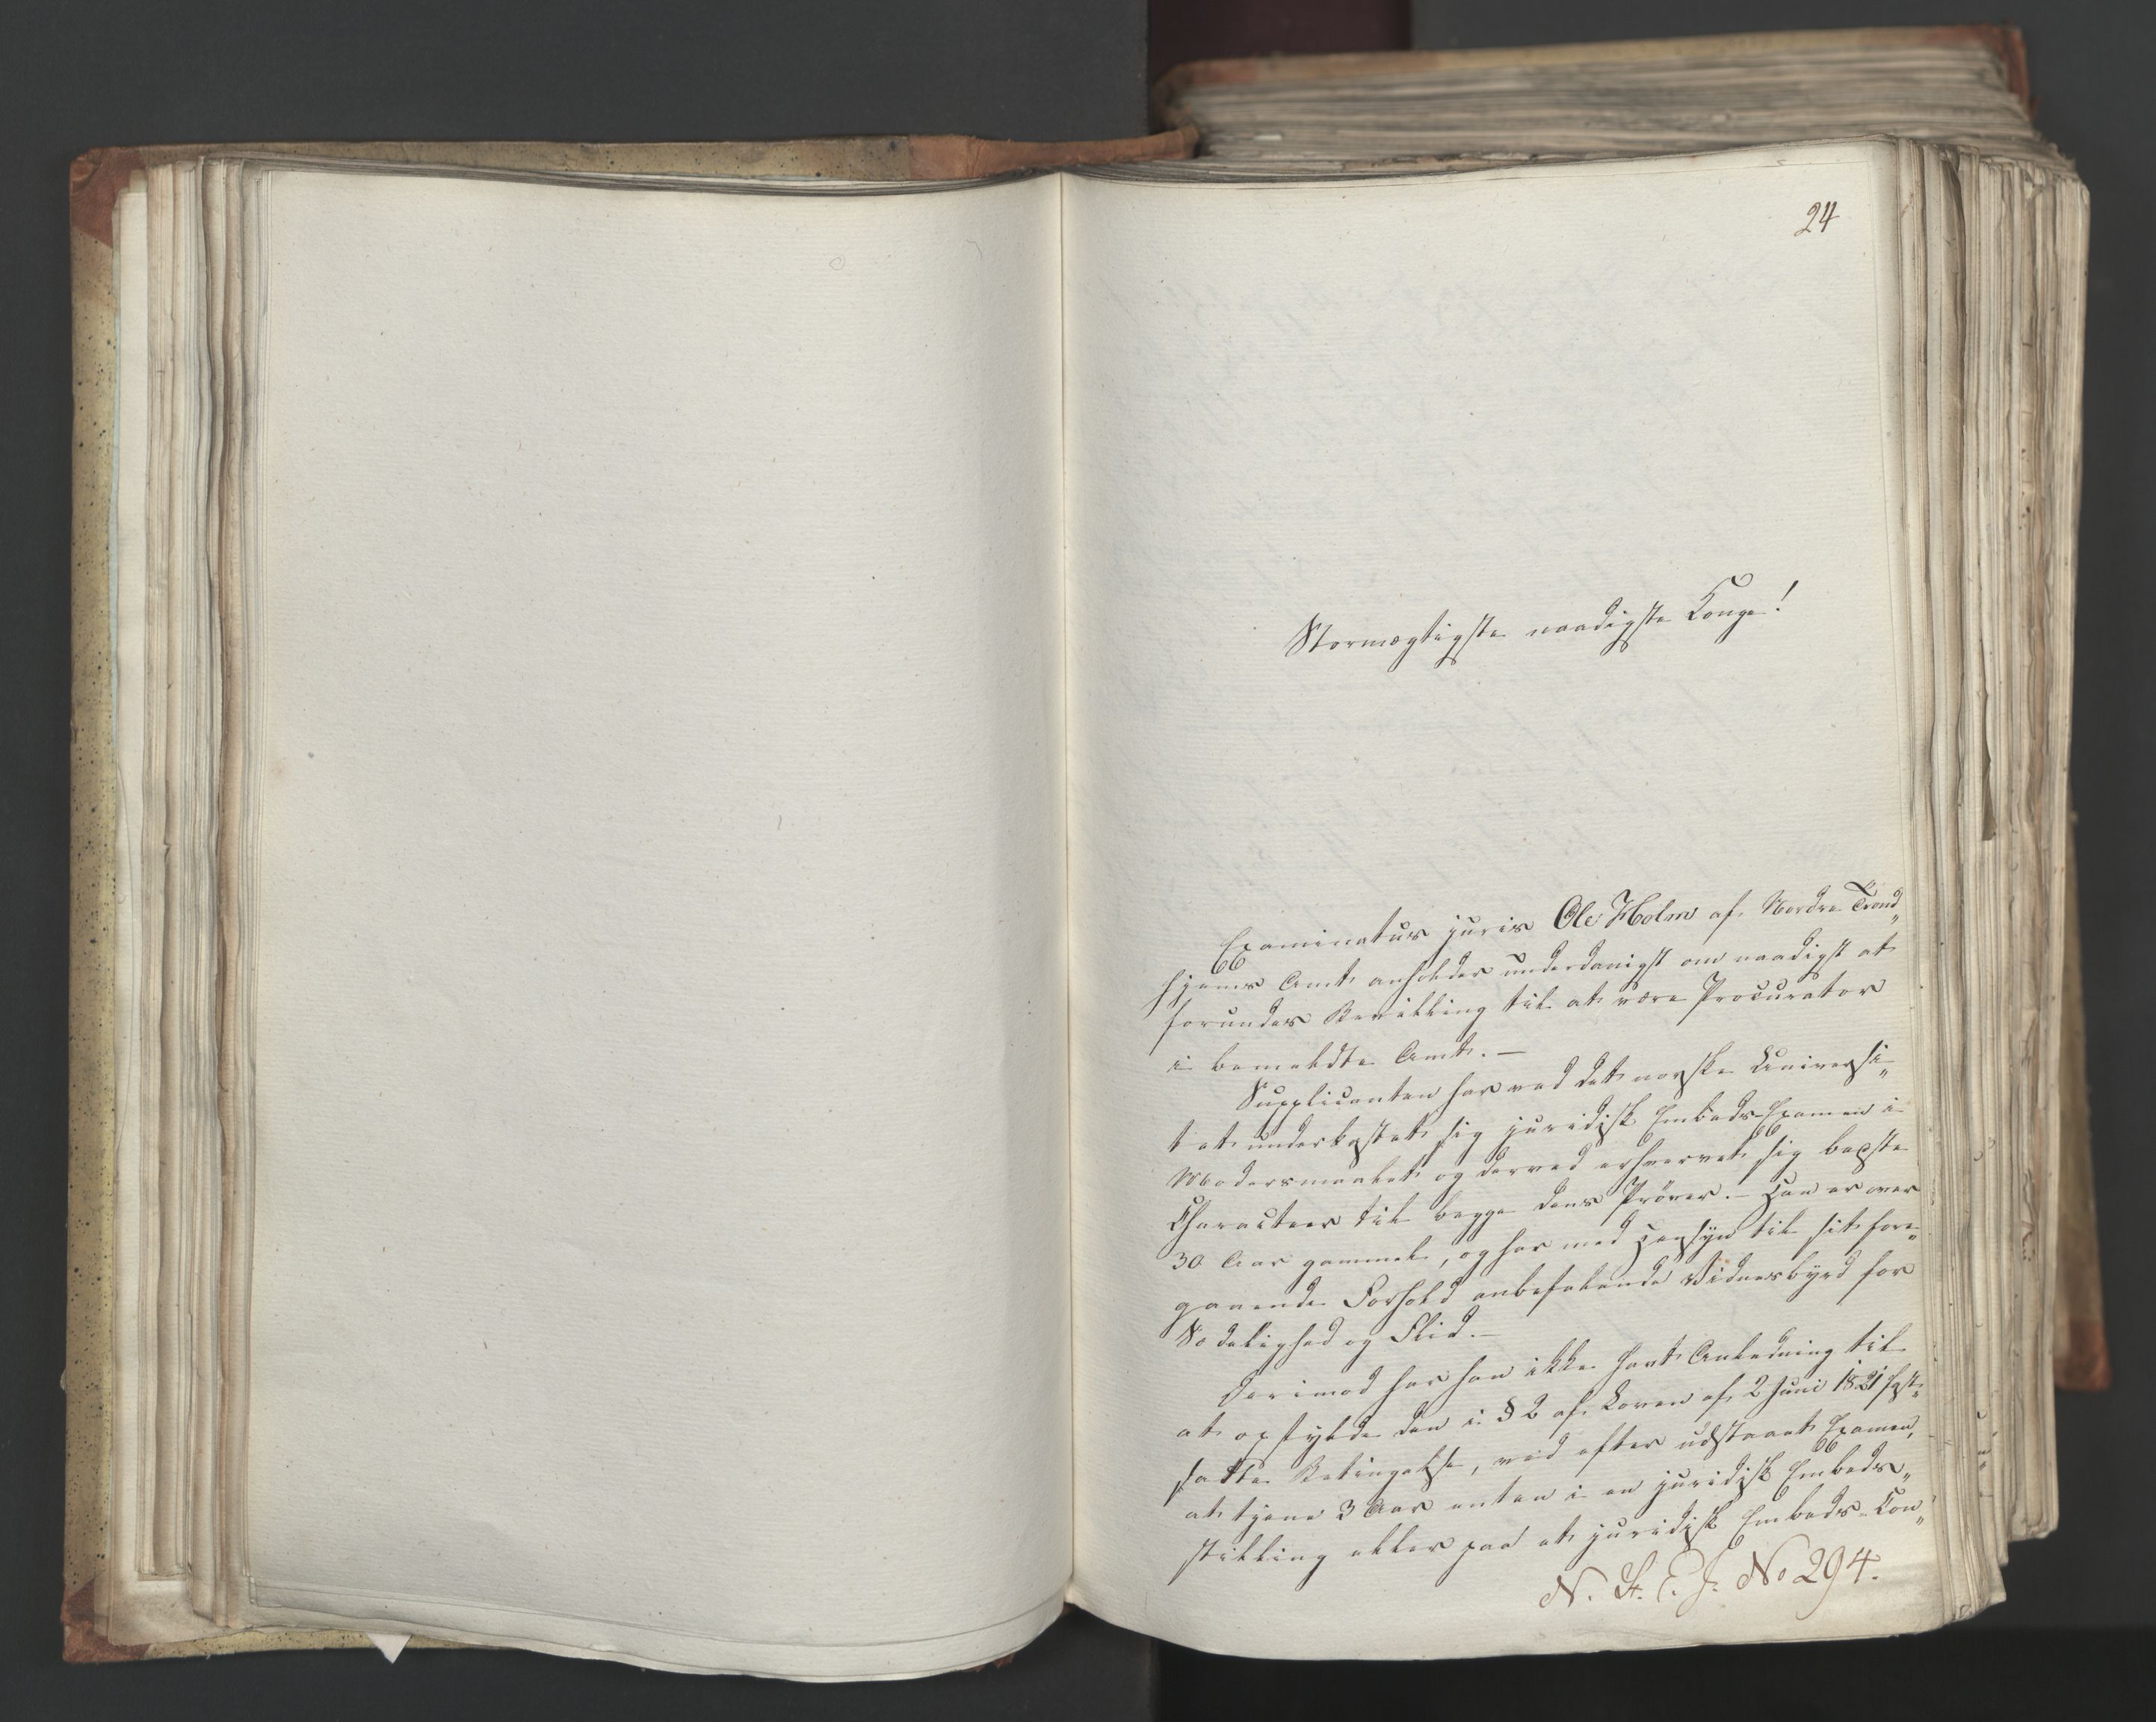 24
Stormægtigste naadigste Konge!
Examinatus juris Ole Holm af Nordre Trond„
hjems Amt anholder underdanigst om naadigst at
forundes Bevilling til at være Procurator
i bemeldte Amt. —
Supplicanten har ved det norske Universi„
tet underkastet sig juridisk Embeds-Examen i
Modersmaalet og derved erhvervet sig bedste
Characteer til begge dens Prøver. — Han er over
30 Aar gammel, og har med Hensyn til sit fore„
gaaende Forhold anbefalende Vidnesbyrd for
Sædelighed og Flid. —
Derimod har han ikke havt Anledning til
at opfylde den i § 2 af Loven af 2 Juni 1821 fast„
satte Betingelse, ved efter udstaaet Examen,
at tjene 3 Aar enten i en juridisk Embeds„
stilling eller paa et juridisk Embeds-Con„
N. St. E. J. No 294.